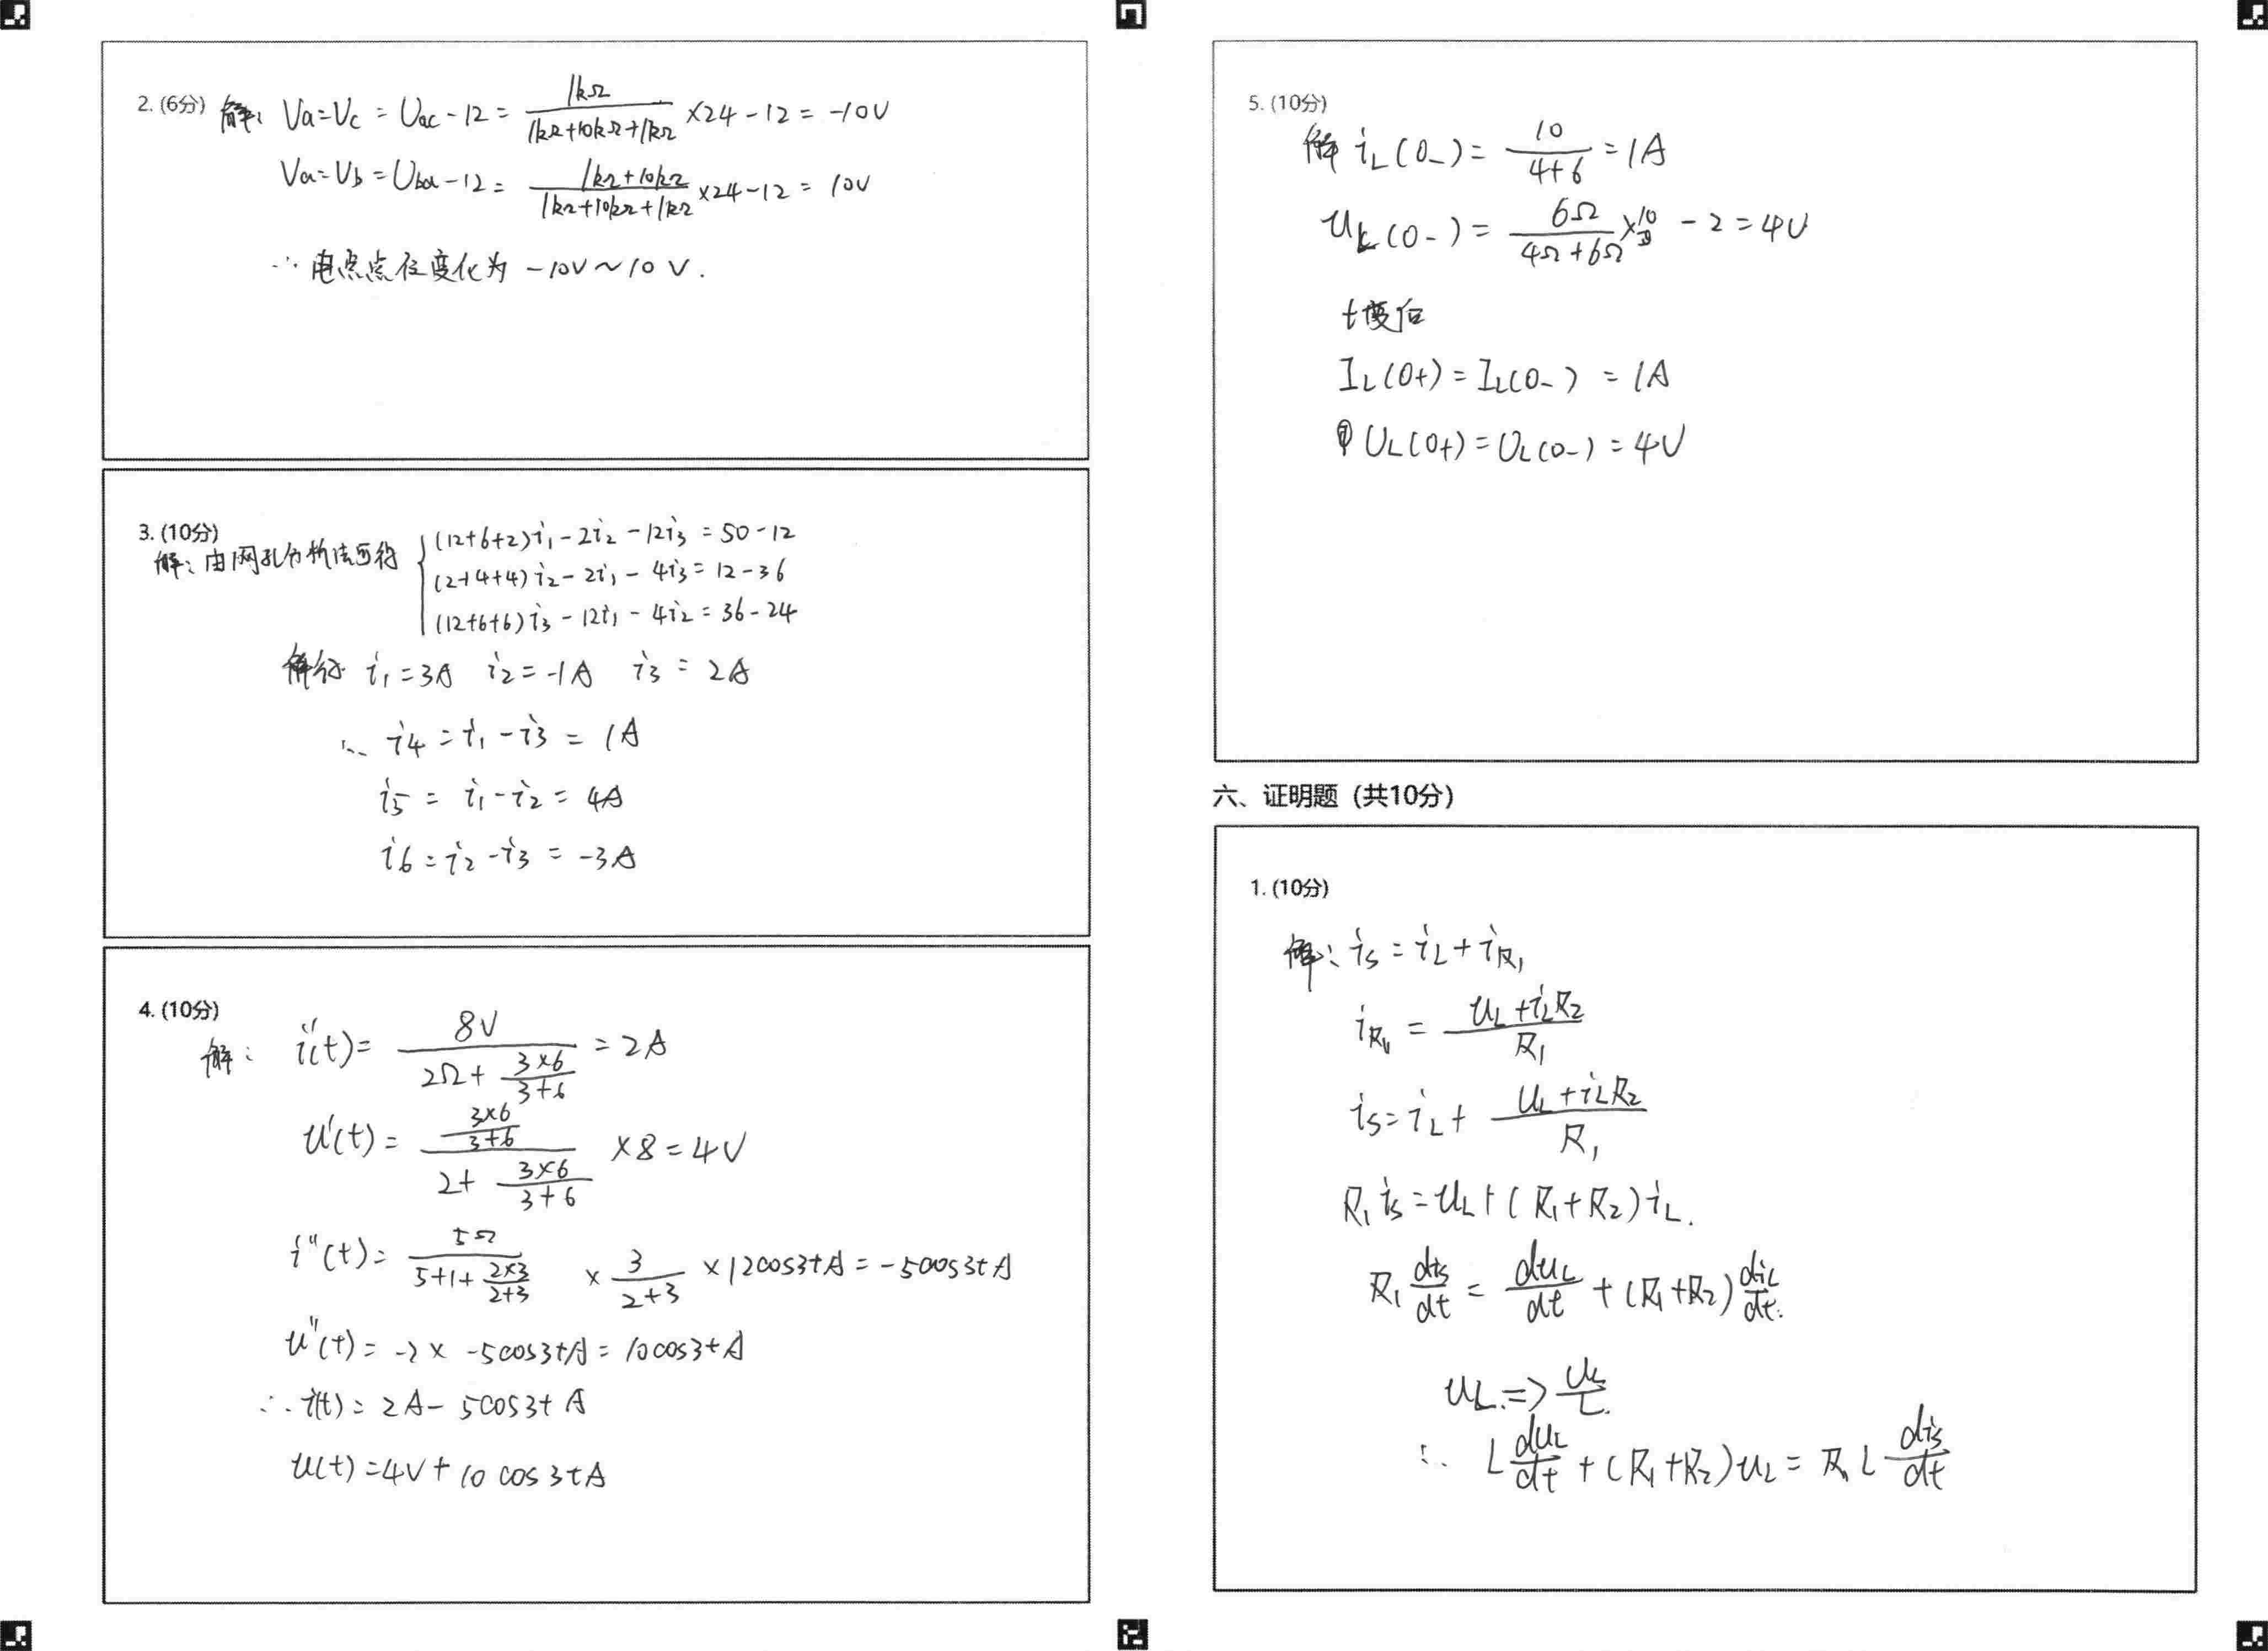 2. (6分) 解: Va=Vc = Uac - 12 = \frac{1kΩ}{1kΩ+10kΩ+1kΩ} ×24 - 12 = -10V
Va=Vb = Uba - 12 = \frac{1kΩ+10kΩ}{1kΩ+10kΩ+1kΩ} ×24 - 12 = 10V
∴ 电点位变化为 -10V ~ 10 V.
3. (10分)
解: 由网孔分析法可得 { (12+6+2)i₁ - 2i₂ - 12i₃ = 50 - 12
(2+4+4) i₂ - 2i₁ - 4i₃ = 12 - 36
(12+6+6) i₃ - 12i₁ - 4i₂ = 36 - 24
解得 i₁ = 3A i₂ = -1A i₃ = 2A
∴ i₄ = i₁ - i₃ = 1A
i₅ = i₁ - i₂ = 4A
i₆ = i₂ - i₃ = -3A
4. (10分)
解: i'(t) = \frac{8V}{2Ω + \frac{3×6}{3+6}} = 2A
u'(t) = \frac{\frac{3×6}{3+6}}{2 + \frac{3×6}{3+6}} ×8 = 4V
i''(t) = \frac{5Ω}{5+1+\frac{2×3}{2+3}} × \frac{3}{2+3} × 12cos3tA = -5cos3tA
u''(t) = -2 × -5cos3tA = 10cos3tA
∴ i(t) = 2A - 5cos3t A
u(t) = 4V + 10 cos 3tA
5. (10分)
解 i_L(0-) = \frac{10}{4+6} = 1A
u_L(0-) = \frac{6Ω}{4Ω+6Ω} ×10 - 2 = 4V
t变后
I_L(0+) = I_L(0-) = 1A
U_L(0+) = U_L(0-) = 4V
六、证明题（共10分）
1. (10分)
解: i_s = i_L + i_{R₁}
i_{R₁} = \frac{u_L + i_L R₂}{R₁}
i_s = i_L + \frac{u_L + i_L R₂}{R₁}
R₁ i_s = u_L + (R₁+R₂) i_L.
R₁ \frac{di_s}{dt} = \frac{du_L}{dt} + (R₁+R₂) \frac{di_L}{dt}.
u_L. => \frac{u_L}{L}.
∴ L \frac{du_L}{dt} + (R₁+R₂) u_L = R₁ L \frac{di_s}{dt}